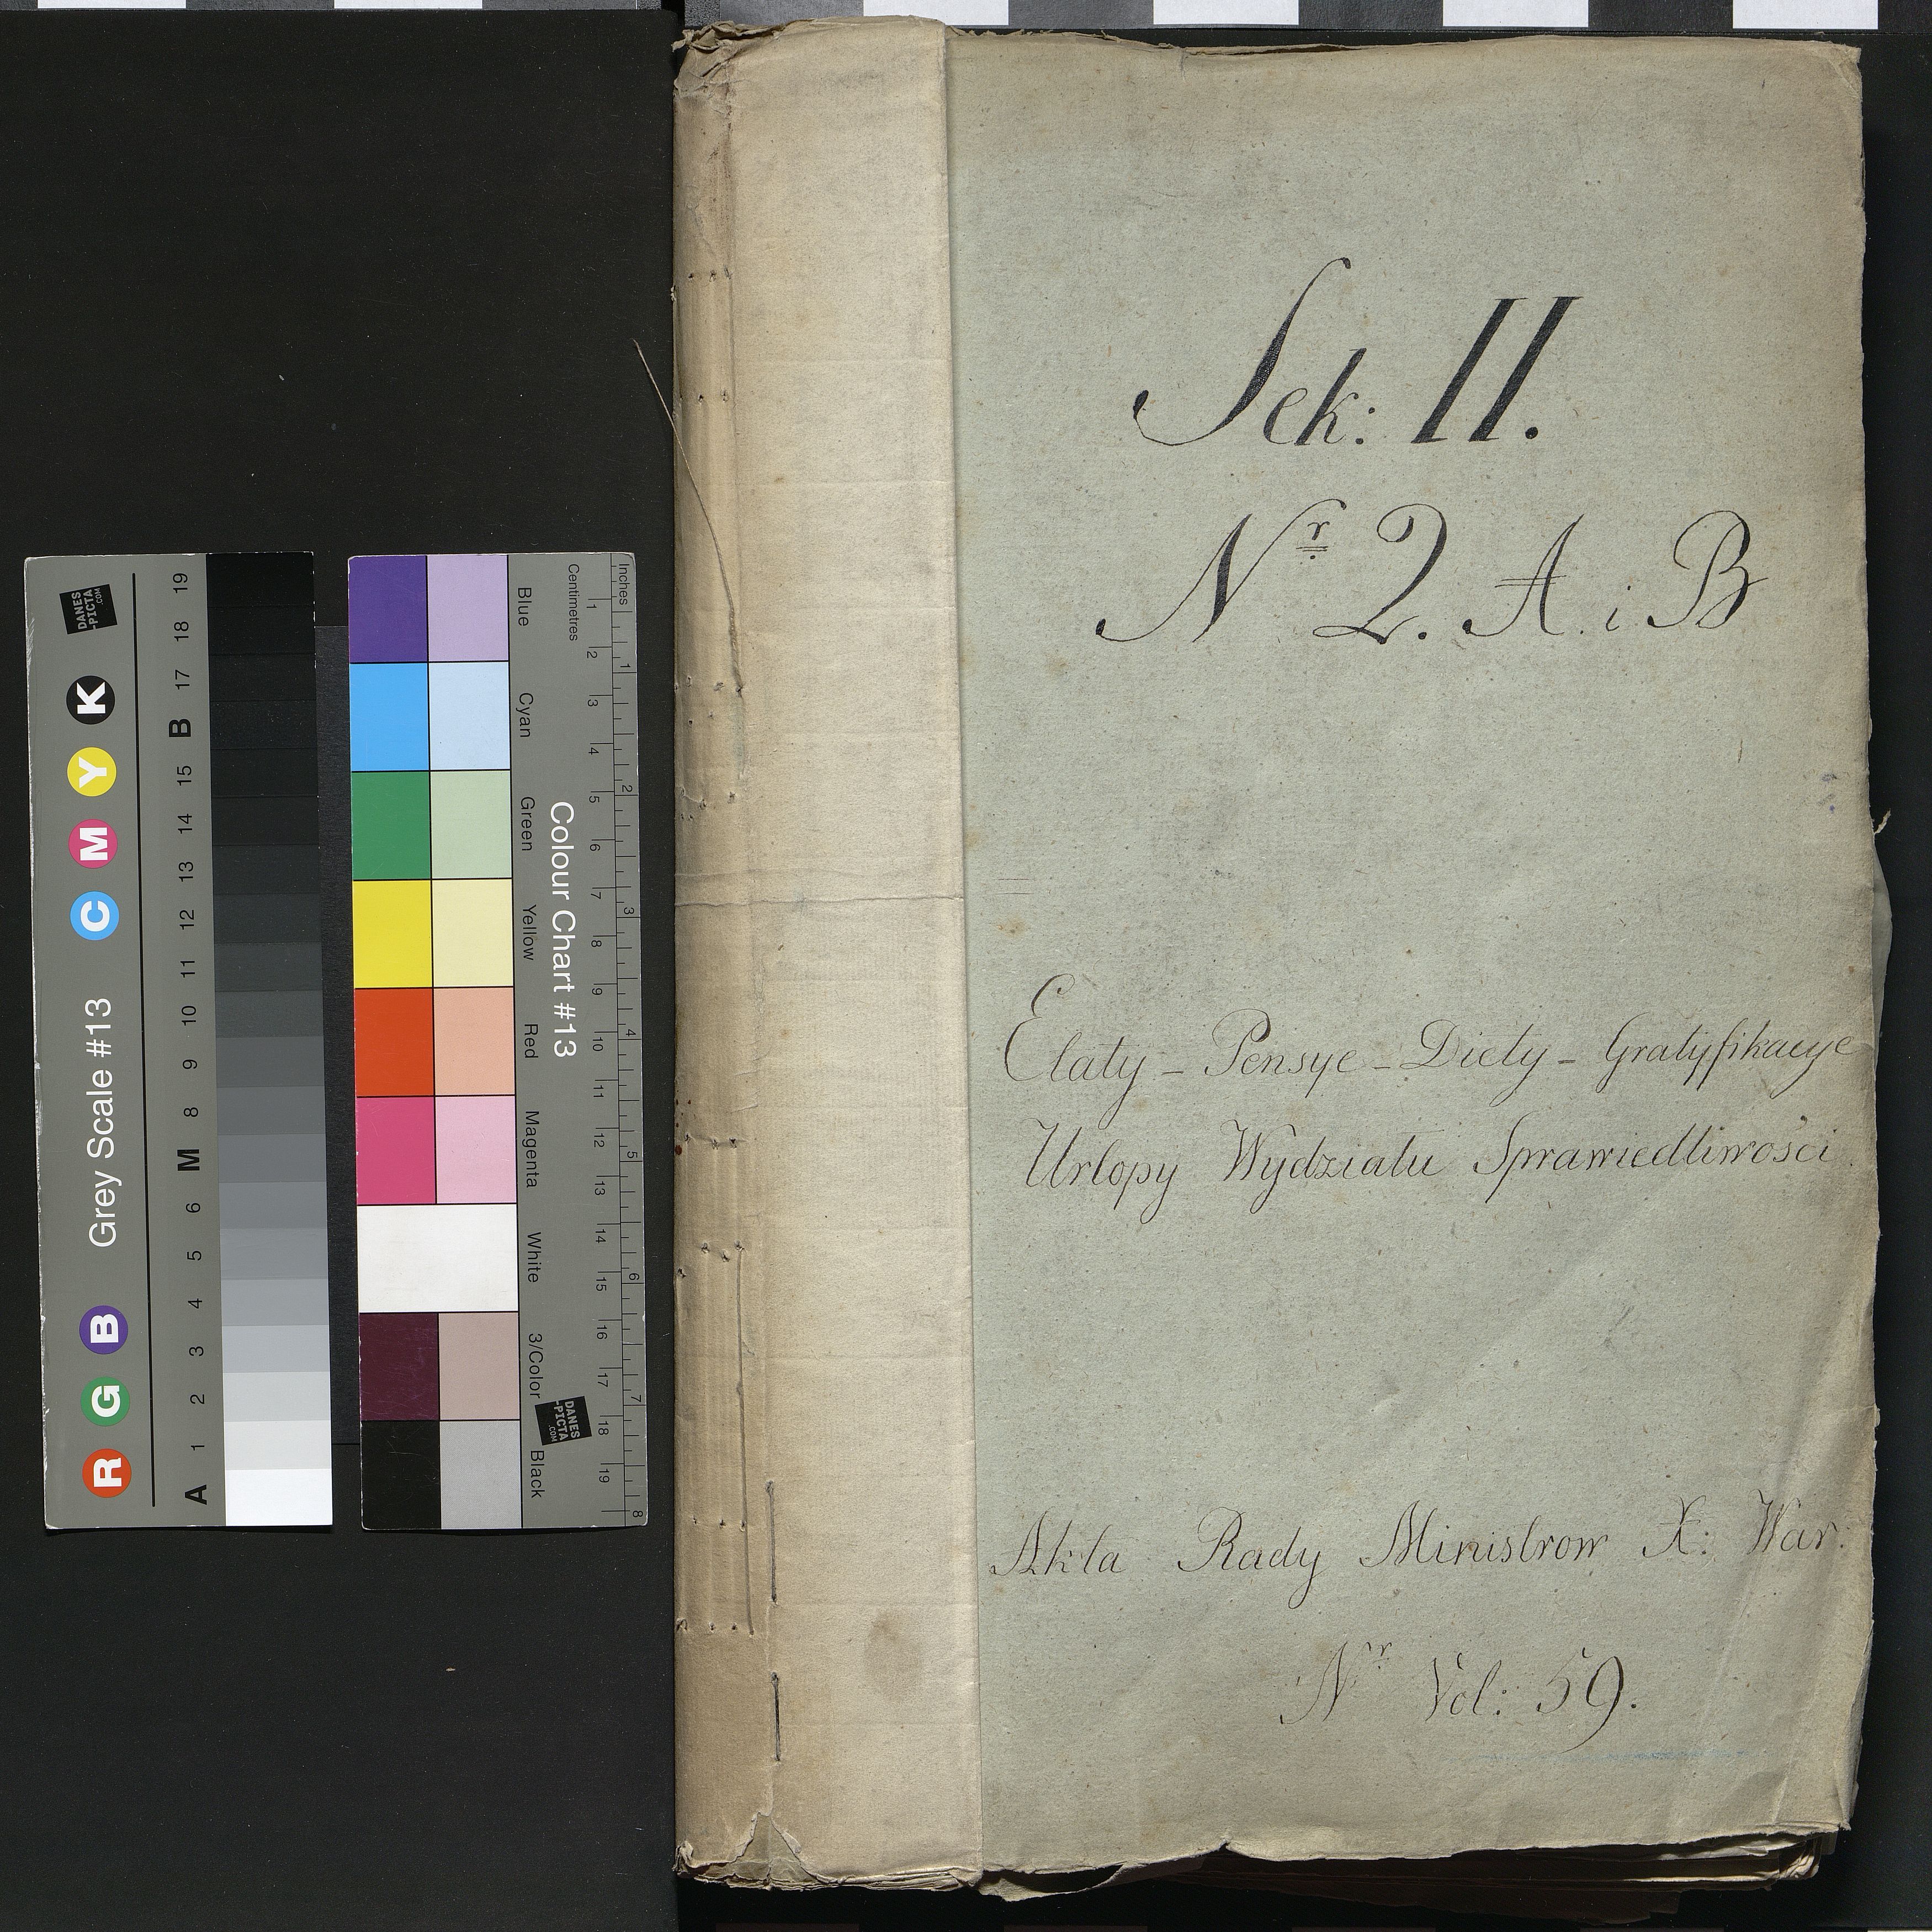 Sek: II.
Nr 2. A. i B
Etaty - Pensye - Diety - Gratyfikacye
Urlopy Wydziału Sprawiedliwości
Akta Rady Ministrow X: War:
Nr Vol: 59.
Grey Scale #13
R G B C M Y K
A 1 2 3 4 5 6 M 8 9 10 11 12 13 14 15 B 17 18 19
DANES
-PICTA
.COM
Colour Chart #13
Blue Cyan Green Yellow Red Magenta White 3/Color Black
Centimetres 1 2 3 4 5 6 7 8 9 10 11 12 13 14 15 16 17 18 19
Inches 1 2 3 4 5 6 7 8
DANES
-PICTA
.COM